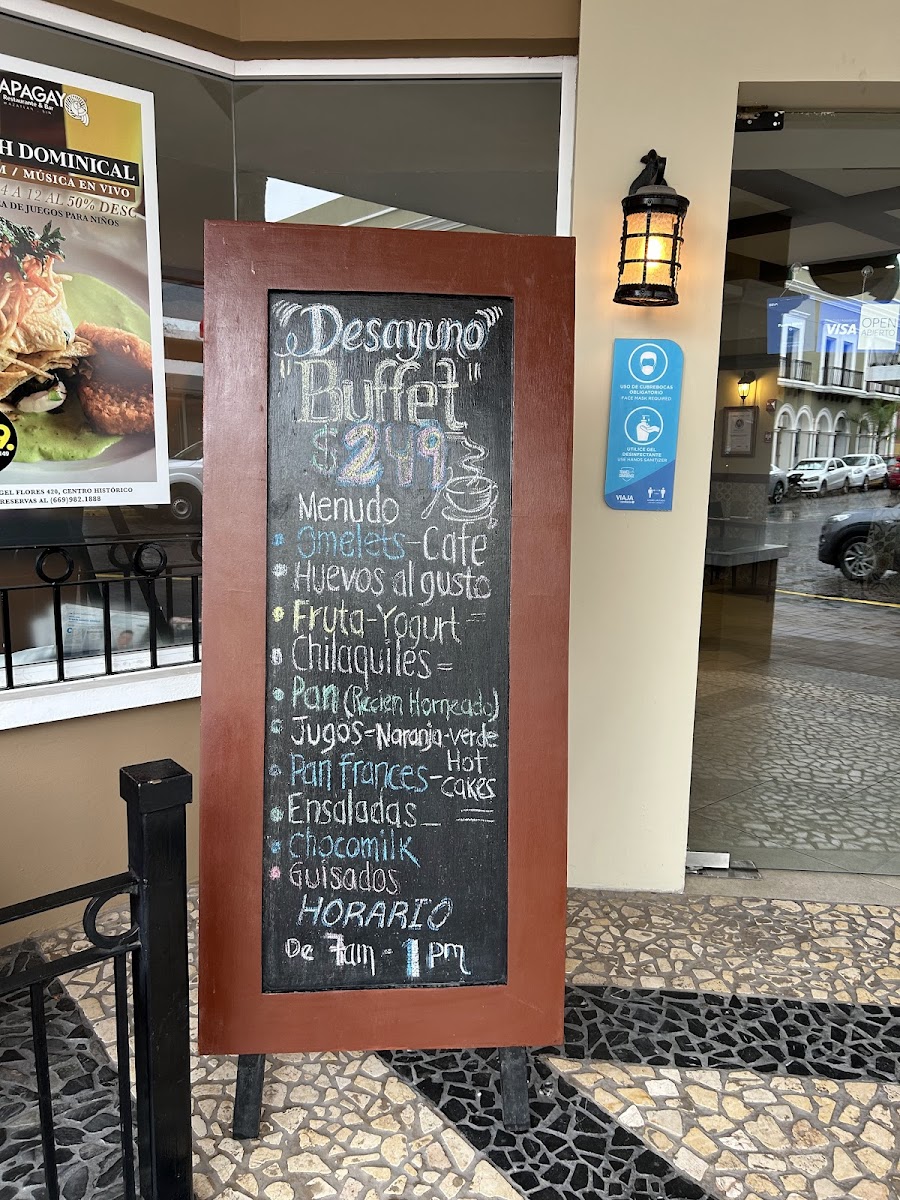 APAGAY
Restaurante & Bar
MAZATLÁN SIN
H DOMINICAL
M / MÚSICA EN VIVO
4 A 12 AL 50% DESC
A DE JUEGOS PARA NIÑOS
9.
GEL FLORES 420, CENTRO HISTÓRICO
RESERVAS AL (669)982.1888
"Desayuno"
"Buffet"
$249
Menudo
Omelets-Café
Huevos al gusto
Fruta-Yogurt
Chilaquiles
Pan (Recien Horneado)
Jugos-Naranja-verde
Pan frances-Hot cakes
Ensaladas
Chocomilk
Guisados
HORARIO
De 7am - 1pm
USO DE CUBREBOCAS
OBLIGATORIO
FACE MASK REQUIRED
UTILICE GEL
DESINFECTANTE
USE HANDS SANITIZER
VIAJA
VISA
OPEN
ABIERTO